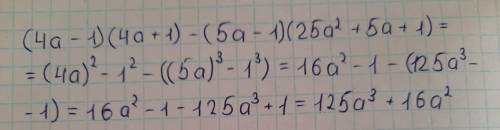 (4a - 1)(4a + 1) - (5a - 1)(25a² + 5a + 1) =
= (4a)² - 1² - ((5a)³ - 1³) = 16a² - 1 - (125a³ -
- 1) = 16a² - 1 - 125a³ + 1 = 125a³ + 16a²